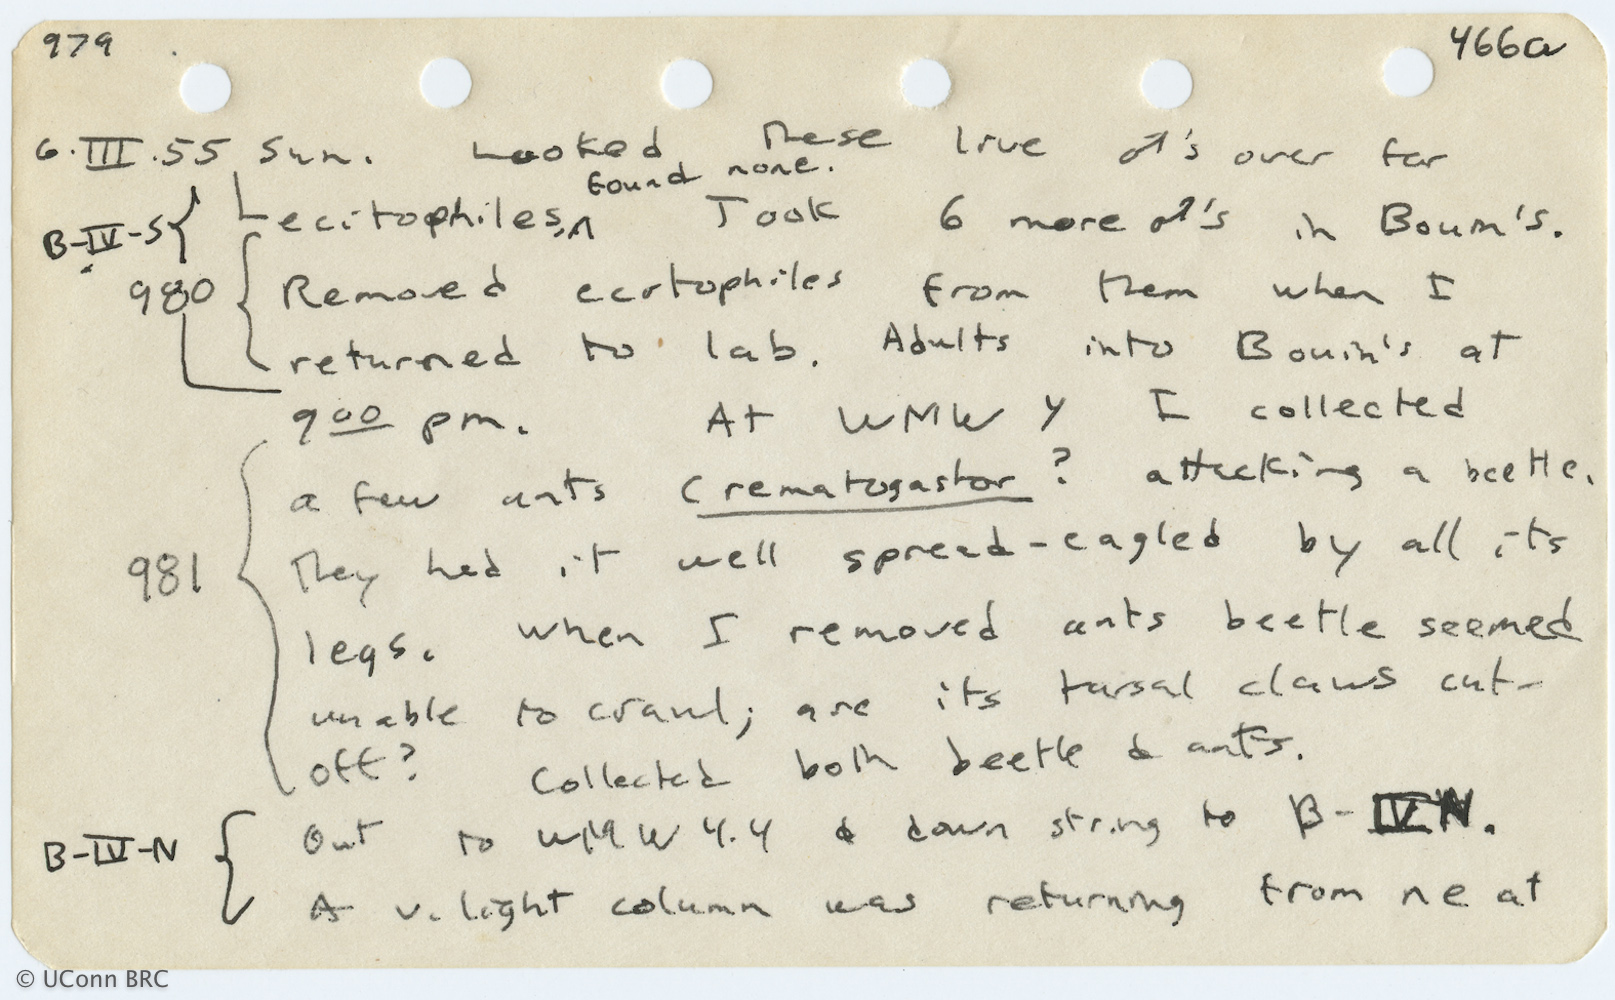 979 466a
6.III.55 Sun. Looked these live ♂'s over for
found none.
B-IV-S ecitophiles,^ Took 6 more ♂'s in Bouin's.
980 Removed ecitophiles from them when I
returned to lab. Adults into Bouin's at
900 pm. At WMW 4 I collected
a few ants Crematogastor? attacking a beetle.
981 They had it well spread-eagled by all its
legs. When I removed ants beetle seemed
unable to crawl; are its tarsal claws cut-
off? Collected both beetle & ants.
B-IV-N Out to WMW 4.4 & down string to B-IV N.
A v. light column was returning from ne at
© UConn BRC